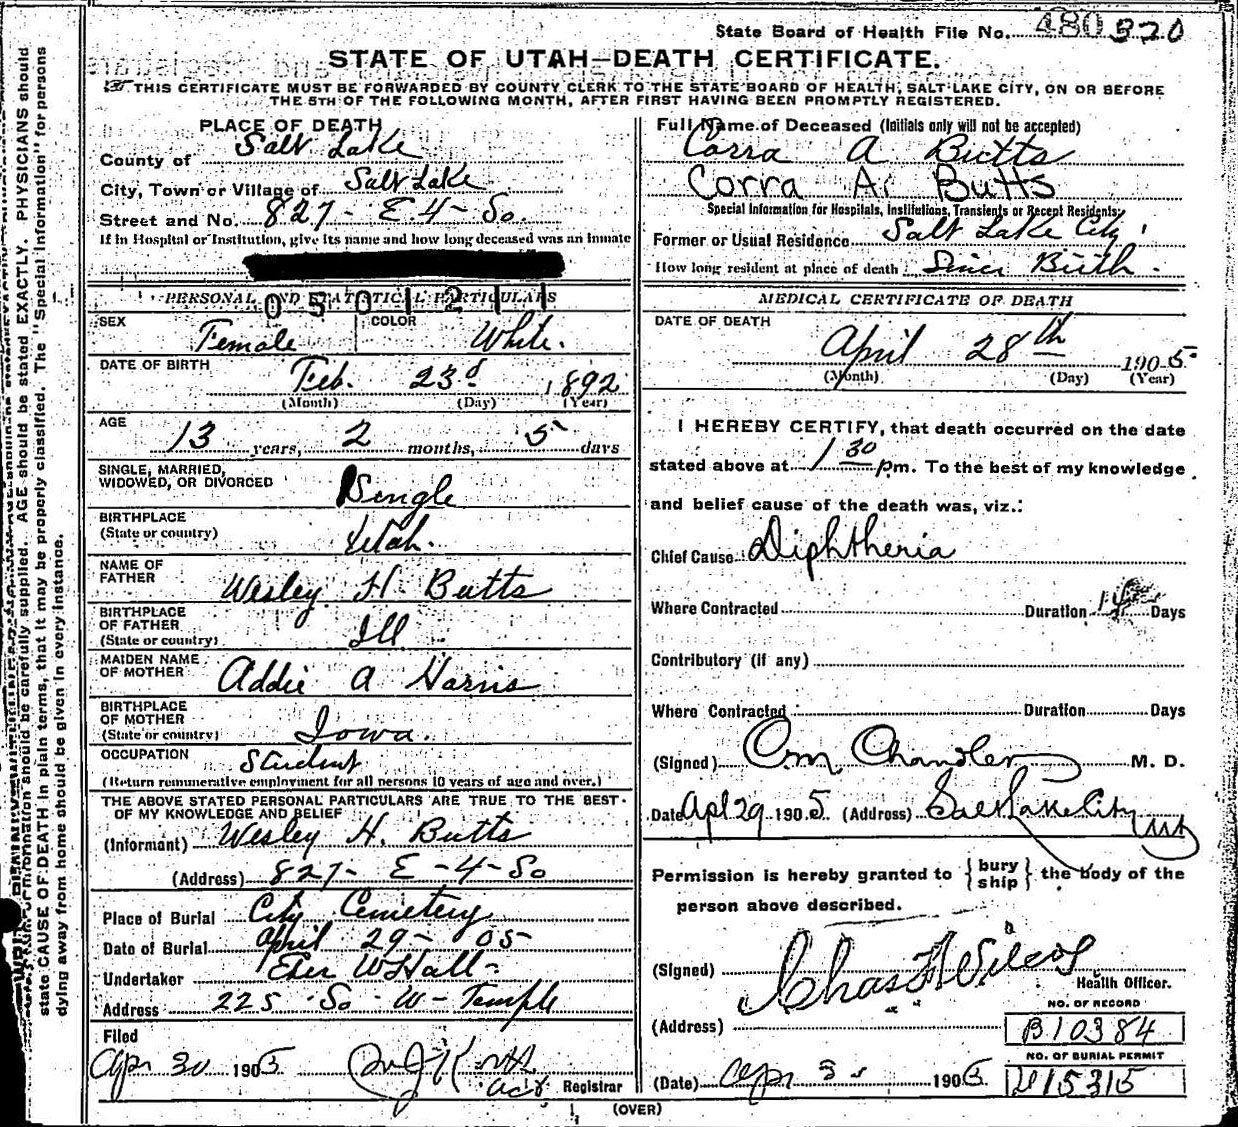 State Board of Health File No. 480 320
STATE OF UTAH—DEATH CERTIFICATE.
THIS CERTIFICATE MUST BE FORWARDED BY COUNTY CLERK TO THE STATE BOARD OF HEALTH, SALT LAKE CITY, ON OR BEFORE
THE 5TH OF THE FOLLOWING MONTH, AFTER FIRST HAVING BEEN PROMPTLY REGISTERED.
PLACE OF DEATH
County of Salt Lake
City, Town or Village of Salt Lake
Street and No. 827 - E. 4 - So.
If in Hospital or Institution, give its name and how long deceased was an inmate
PERSONAL AND STATISTICAL PARTICULARS
0501211
SEX Female COLOR White.
DATE OF BIRTH Feb. 23d 1892
(Month) (Day) (Year)
AGE
13 years, 2 months, 5 days
SINGLE, MARRIED,
WIDOWED, OR DIVORCED Single
BIRTHPLACE
(State or country) Utah.
NAME OF
FATHER Wesley H. Butts
BIRTHPLACE
OF FATHER
(State or country) Ill
MAIDEN NAME
OF MOTHER Addie A Harris
BIRTHPLACE
OF MOTHER
(State or country) Iowa.
OCCUPATION Student
(Return remunerative employment for all persons 10 years of age and over.)
THE ABOVE STATED PERSONAL PARTICULARS ARE TRUE TO THE BEST
OF MY KNOWLEDGE AND BELIEF
(Informant) Wesley H. Butts
(Address) 827 - E - 4 - So
Place of Burial City Cemetery
Date of Burial April 29 - 05 -
Undertaker Eber W Hall -
Address 225 So - W - Temple
Filed
Apr 30 1905 Registrar
Full Name of Deceased (Initials only will not be accepted)
Corra A Butts
Corra A. Butts
Special Information for Hospitals, Institutions, Transients or Recent Residents:
Former or Usual Residence Salt Lake City
How long resident at place of death Since Birth.
MEDICAL CERTIFICATE OF DEATH
DATE OF DEATH
April 28th 1905
(Month) (Day) (Year)
I HEREBY CERTIFY, that death occurred on the date
stated above at 1 30 pm. To the best of my knowledge
and belief cause of the death was, viz.:
Chief Cause Diphtheria
Where Contracted Duration Days
Contributory (if any)
Where Contracted Duration Days
(Signed) Chandler M. D.
Date Apl 29 1905 (Address) Salt Lake City Ut
Permission is hereby granted to { bury ship } the body of the
person above described.
(Signed) Chas F Wilcox
Health Officer.
(Address)
NO. OF RECORD
B10384
NO. OF BURIAL PERMIT
15315
(Date) Apr 1905
(OVER)
state CAUSE OF DEATH in plain terms, that it may be properly classified. The "Special Information" for persons
dying away from home should be given in every instance.